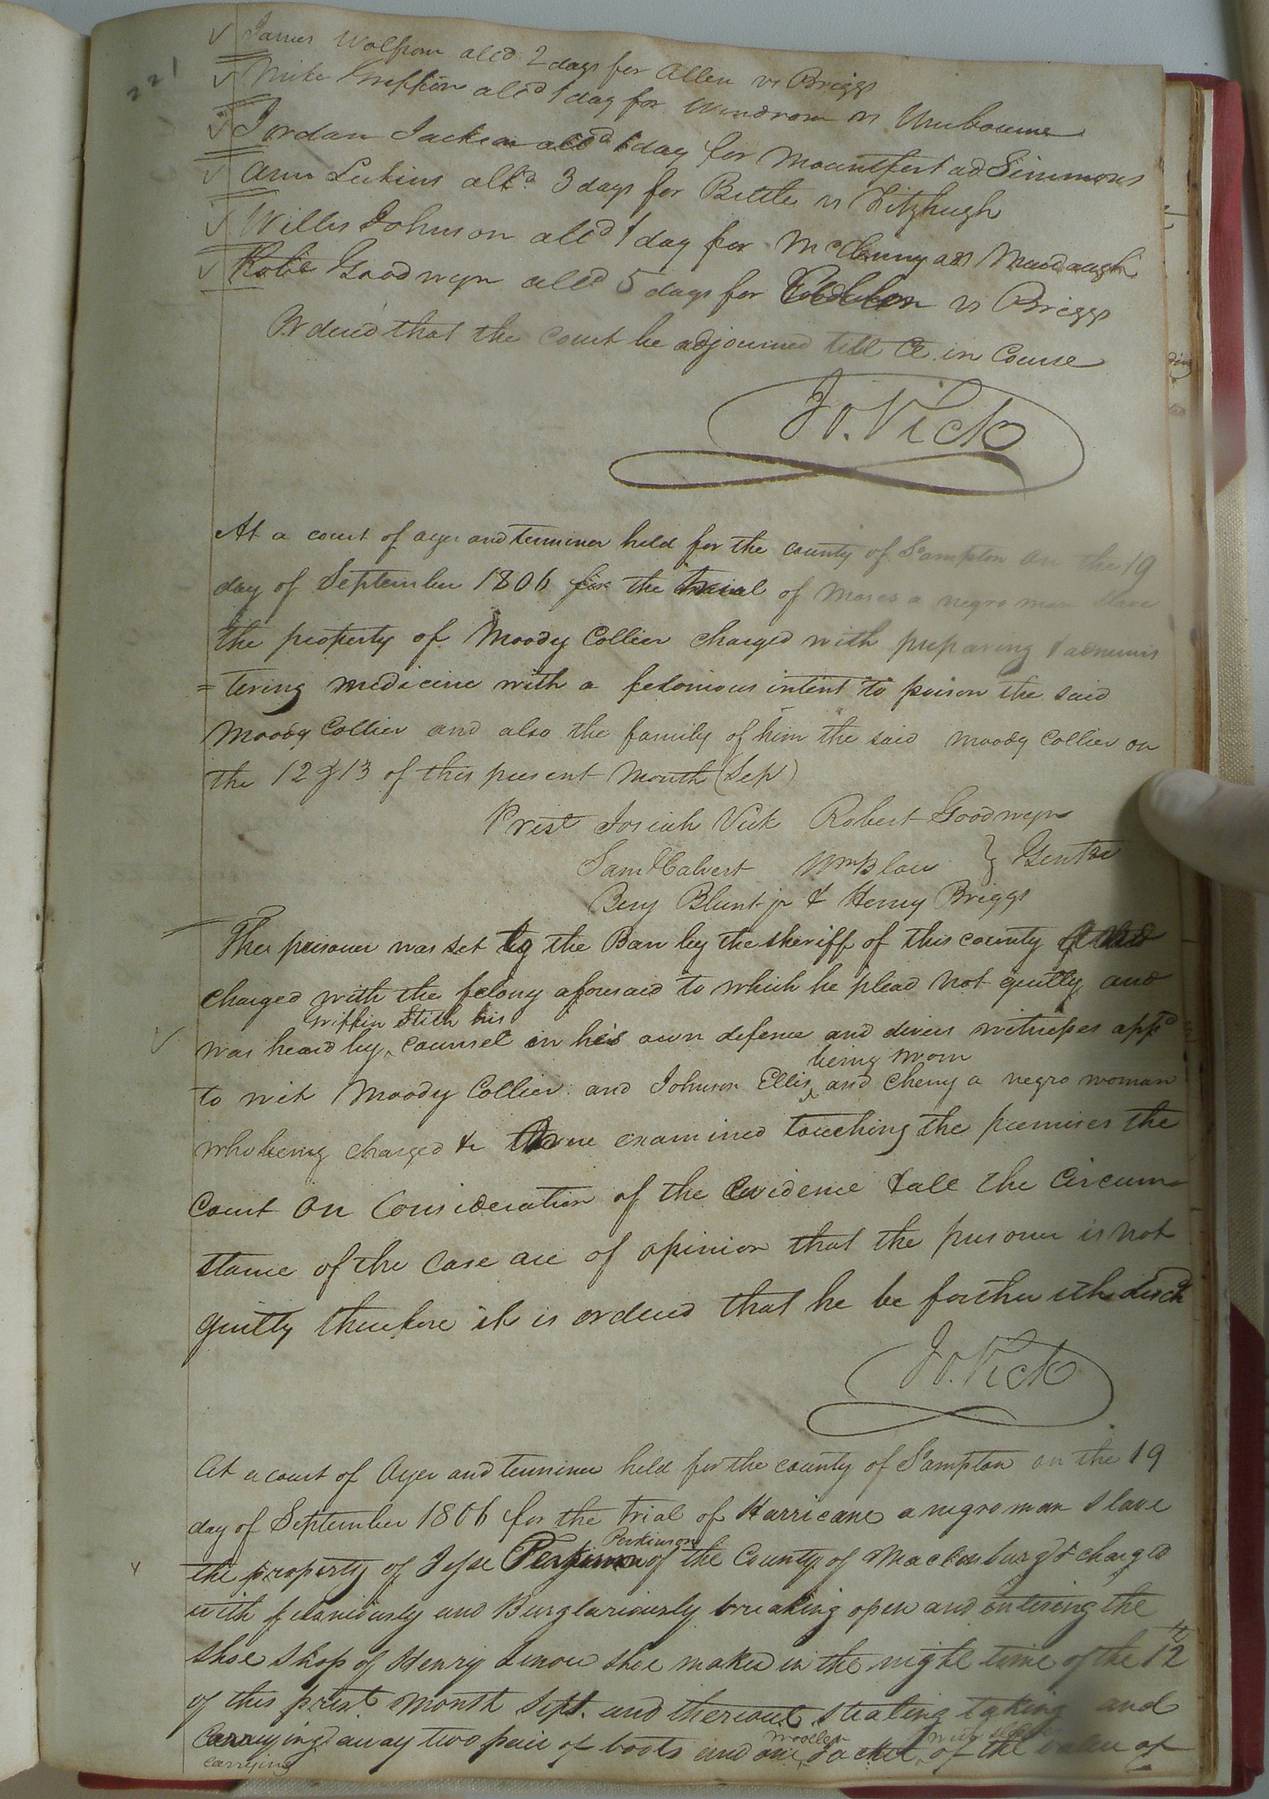 221
James Wolfrom alld 2 days for Allen vs Briggs
Mike Griffin alld 1 day for Windrom vs
Jordan Jackson alld 1 day for Mountfort ads Simmons
Ann Lukins alld 3 days for Battle vs Fitzhugh
Willis Johnson alld 1 day for McClenny ads Murdaugh
Robt Goodwyn alld 5 days for vs Briggs
Ordered that the court be adjourned till Ct. in Course
Jo. Vick
At a court of oyer and terminer held for the county of S'ampton on the 19
day of September 1806 for the trial of Moses a negro man slave
the property of Moody Collier charged with preparing & adminis
=tering medicine with a felonious intent to poison the said
Moody Collier and also the family of him the said Moody Collier on
the 12 & 13 of this present Month (Sep)
Prest Josiah Vick Robert Goodwyn
Saml Calvert Wm Blow } Gentn
Benj Blunt jr & Henry Briggs
The prisoner was set to the Bar by the sheriff of this county
charged with the felony aforesaid to which he plead not guilty and
Griffin Stith his
was heard by counsel in his own defence and divers witnesses appd
being sworn
to wit Moody Collier and Johnson Ellis and Cherry a negro woman
who being charged & were examined touching the premises the
Court on Consideration of the Evidence & all the Circum-
stance of the Case are of opinion that the prisoner is not
guilty therefore it is ordered that he be forthwith disch
Jo. Vick
At a court of Oyer and terminer held for the county of S'ampton on the 19
day of September 1806 for the trial of Harricane a negro man slave
Perkinson
the property of Jesse of the County of Mecklenburg & charged
with feloniously and Burglariously breaking open and entering the
shoe shop of Henry shoe maker in the night time of the 12th
of this prest Month Sept. and thereout stealing taking and
woollen
carrying away two pair of boots and one Jacket of the value of
carrying